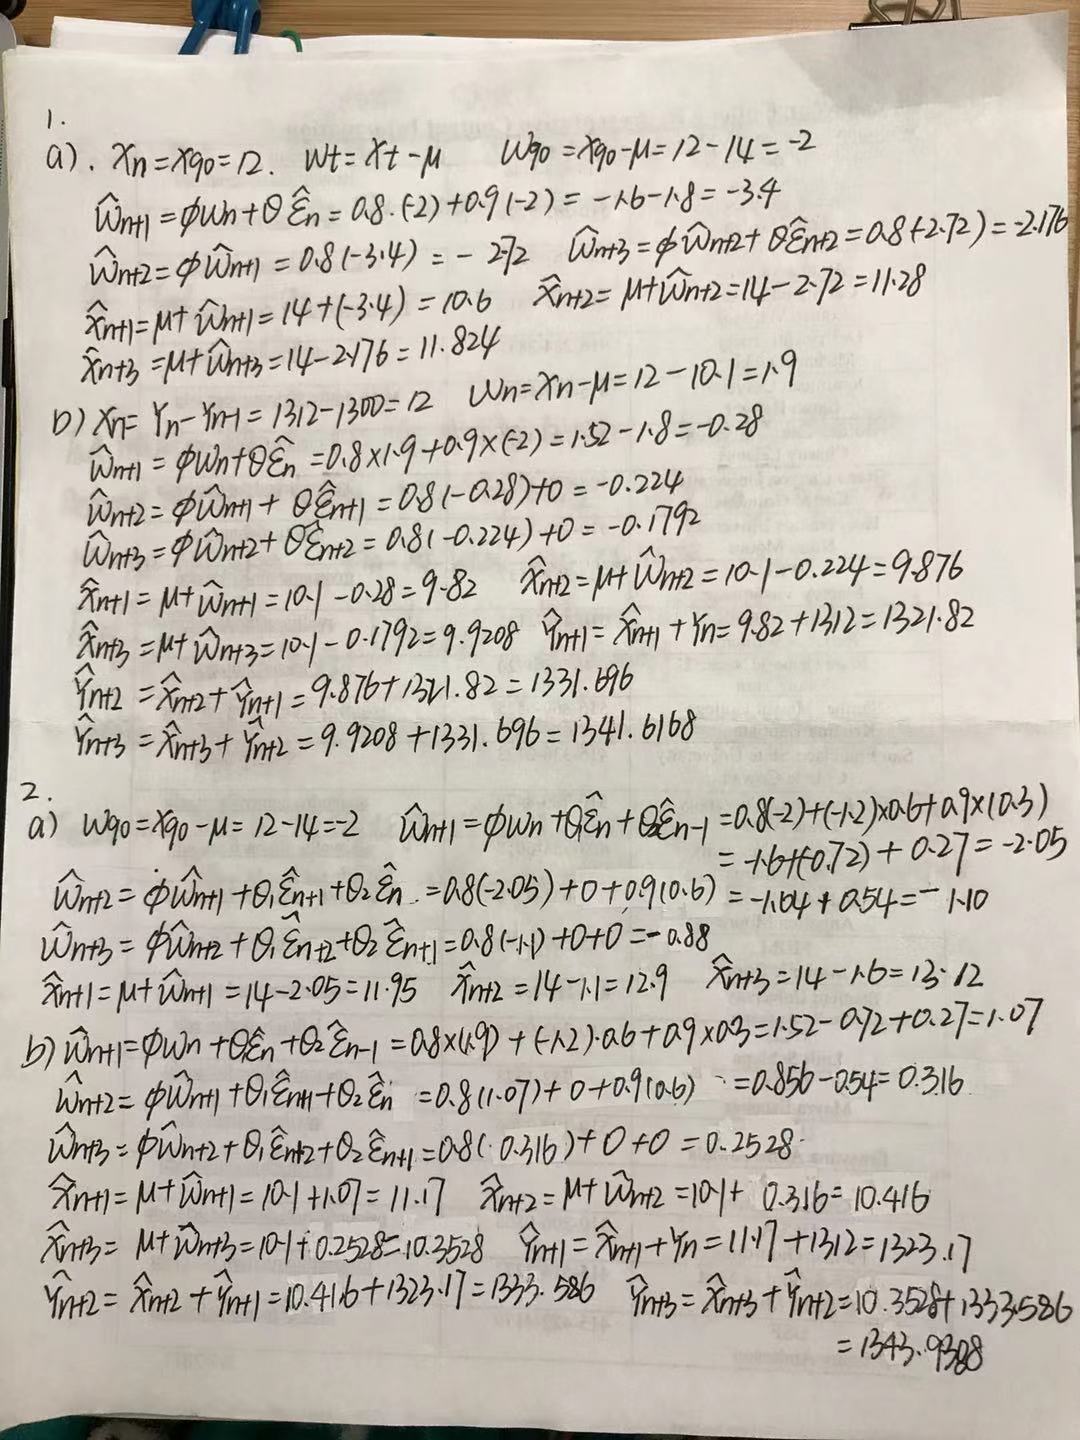 1.
a). Xn=X90=12. Wt=Xt-μ W90=X90-μ=12-14=-2
Ŵn+1=φWn+θε̂n=0.8·(-2)+0.9(-2)=-1.6-1.8=-3.4
Ŵn+2=φŴn+1=0.8(-3.4)=-2.72 Ŵn+3=φŴn+2+θε̂n+2=0.8(-2.72)=-2.176
X̂n+1=μ+Ŵn+1=14+(-3.4)=10.6 X̂n+2=μ+Ŵn+2=14-2.72=11.28
X̂n+3=μ+Ŵn+3=14-2.176=11.824
b) Xn=Yn-Yn-1=1312-1300=12 Wn=Xn-μ=12-10.1=1.9
Ŵn+1=φWn+θε̂n=0.8×1.9+0.9×(-2)=1.52-1.8=-0.28
Ŵn+2=φŴn+1+θε̂n+1=0.8(-0.28)+0=-0.224
Ŵn+3=φŴn+2+θε̂n+2=0.8(-0.224)+0=-0.1792
X̂n+1=μ+Ŵn+1=10.1-0.28=9.82 X̂n+2=μ+Ŵn+2=10.1-0.224=9.876
X̂n+3=μ+Ŵn+3=10.1-0.1792=9.9208 Ŷn+1=X̂n+1+Yn=9.82+1312=1321.82
Ŷn+2=X̂n+2+Ŷn+1=9.876+1321.82=1331.696
Ŷn+3=X̂n+3+Ŷn+2=9.9208+1331.696=1341.6168
2.
a) W90=X90-μ=12-14=-2 Ŵn+1=φWn+θ1ε̂n+θ2ε̂n-1=0.8(-2)+(-1.2)×0.6+0.9×(0.3)
=-1.6+(-0.72)+0.27=-2.05
Ŵn+2=φŴn+1+θ1ε̂n+1+θ2ε̂n=0.8(-2.05)+0+0.9(0.6)=-1.64+0.54=-1.10
Ŵn+3=φŴn+2+θ1ε̂n+2+θ2ε̂n+1=0.8(-1.1)+0+0=-0.88
X̂n+1=μ+Ŵn+1=14-2.05=11.95 X̂n+2=14-1.1=12.9 X̂n+3=14-1.6=13.12
b) Ŵn+1=φWn+θ1ε̂n+θ2ε̂n-1=0.8×(1.9)+(-1.2)·0.6+0.9×0.3=1.52-0.72+0.27=1.07
Ŵn+2=φŴn+1+θ1ε̂n+1+θ2ε̂n=0.8(1.07)+0+0.9(0.6)=0.856-0.54=0.316
Ŵn+3=φŴn+2+θ1ε̂n+2+θ2ε̂n+1=0.8(0.316)+0+0=0.2528
X̂n+1=μ+Ŵn+1=10.1+1.07=11.17 X̂n+2=μ+Ŵn+2=10.1+0.316=10.416
X̂n+3=μ+Ŵn+3=10.1+0.2528=10.3528 Ŷn+1=X̂n+1+Yn=11.17+1312=1323.17
Ŷn+2=X̂n+2+Ŷn+1=10.416+1323.17=1333.586 Ŷn+3=X̂n+3+Ŷn+2=10.3528+1333.586
=1343.9388